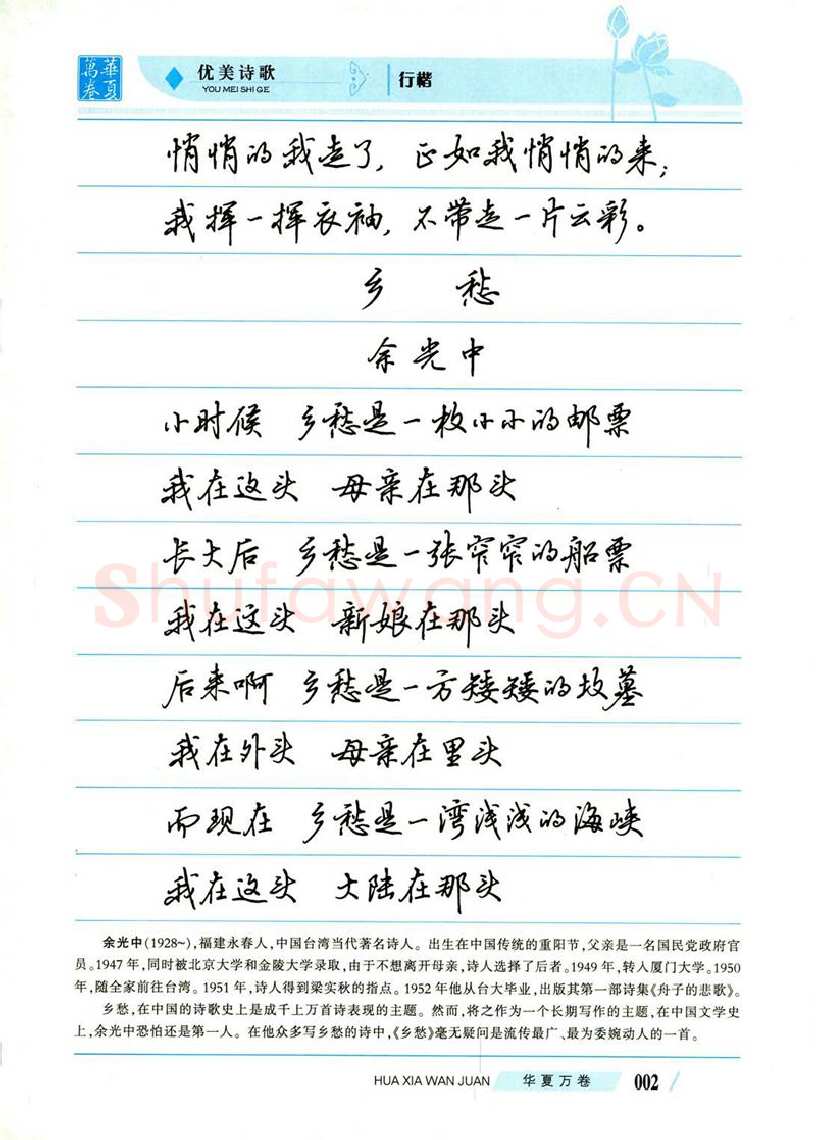 華夏萬卷
优美诗歌
YOU MEI SHI GE
行楷
悄悄的我走了，正如我悄悄的来；
我挥一挥衣袖，不带走一片云彩。
乡 愁
余光中
小时候 乡愁是一枚小小的邮票
我在这头 母亲在那头
长大后 乡愁是一张窄窄的船票
我在这头 新娘在那头
后来啊 乡愁是一方矮矮的坟墓
我在外头 母亲在里头
而现在 乡愁是一湾浅浅的海峡
我在这头 大陆在那头
Shufawang.CN
余光中(1928~),福建永春人,中国台湾当代著名诗人。出生在中国传统的重阳节,父亲是一名国民党政府官
员。1947年,同时被北京大学和金陵大学录取,由于不想离开母亲,诗人选择了后者。1949年,转入厦门大学。1950
年,随全家前往台湾。1951年,诗人得到梁实秋的指点。1952年他从台大毕业,出版其第一部诗集《舟子的悲歌》。
乡愁,在中国的诗歌史上是成千上万首诗表现的主题。然而,将之作为一个长期写作的主题,在中国文学史
上,余光中恐怕还是第一人。在他众多写乡愁的诗中,《乡愁》毫无疑问是流传最广、最为委婉动人的一首。
HUA XIA WAN JUAN 华夏万卷 002